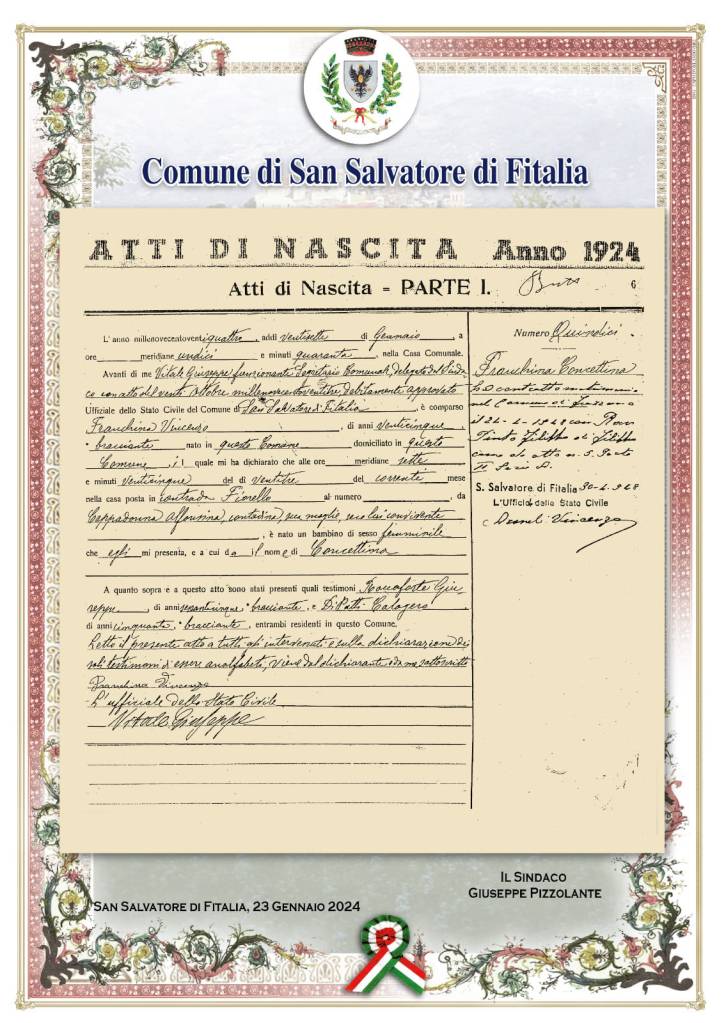 Comune di San Salvatore di Fitalia
ATTI DI NASCITA Anno 1924
Atti di Nascita = PARTE I.
6
L'anno millenovecentoventiquattro, addì ventisette di Gennaio, a
ore meridiane undici e minuti quaranta, nella Casa Comunale.
Avanti di me Vitale Giuseppe funzionante Segretario Comunale, Delegato dal Sinda
co con atto del venti Ottobre millenovecentoventitre debitamente approvato
Ufficiale dello Stato Civile del Comune di San Salvatore di Fitalia, è comparso
Franchina Vincenzo, di anni venticinque,
bracciante nato in questo Comune domiciliato in questo
Comune, il quale mi ha dichiarato che alle ore meridiane sette
e minuti venticinque del dì ventitre del corrente mese
nella casa posta in contrada Fiorello al numero, da
Alfonsina, contadina, sua moglie, seco lui convivente
, è nato un bambino di sesso femminile
che egli mi presenta, e a cui dà il nome di Concettina
A quanto sopra e a questo atto sono stati presenti quali testimoni Bonaforte Giu
seppe, di anni bracciante, e Di Patti Calogero
di anni cinquanta, bracciante, entrambi residenti in questo Comune.
Letto il presente atto a tutti gli intervenuti e sulla dichiarazione dei
soli testimoni di essere analfabeti, viene dal dichiarante e da me sottoscritto
Franchina Vincenzo
L'ufficiale dello Stato Civile
Vitale Giuseppe
Numero Quindici
Franchina Concettina
ha contratto matrimonio
nel Comune di
il con
Filippo di Filippo
come da atto n. 5 Parte
II Serie A.
S. Salvatore di Fitalia 30-4-948
L'Ufficiale dello Stato Civile
Vincenzo
SAN SALVATORE DI FITALIA, 23 GENNAIO 2024
IL SINDACO
GIUSEPPE PIZZOLANTE